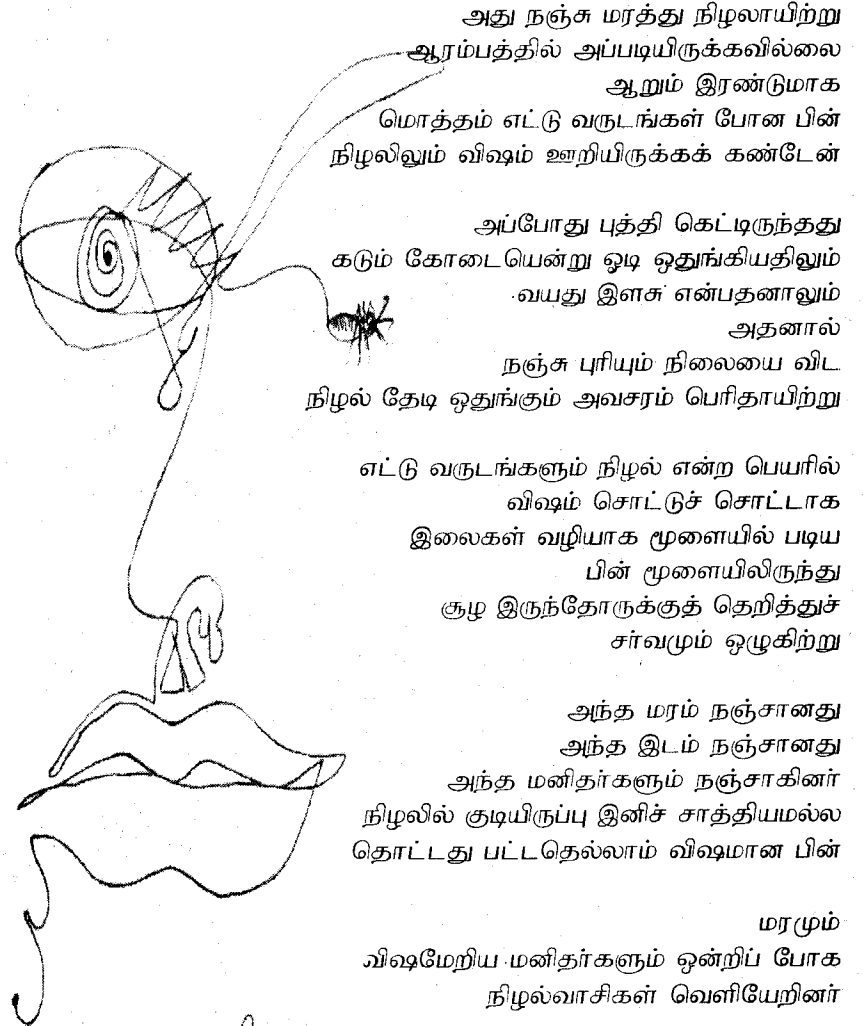 அது நஞ்சு மரத்து நிழலாயிற்று
ஆரம்பத்தில் அப்படியிருக்கவில்லை
ஆறும் இரண்டுமாக
மொத்தம் எட்டு வருடங்கள் போன பின்
நிழலிலும் விஷம் ஊறியிருக்கக் கண்டேன்

அப்போது புத்தி கெட்டிருந்தது
கடும் கோடையென்று ஓடி ஒதுங்கியதிலும்
வயது இளசு என்பதனாலும்
அதனால்
நஞ்சு புரியும் நிலையை விட
நிழல் தேடி ஒதுங்கும் அவசரம் பெரிதாயிற்று

எட்டு வருடங்களும் நிழல் என்ற பெயரில்
விஷம் சொட்டுச் சொட்டாக
இலைகள் வழியாக மூளையில் படிய
பின் மூளையிலிருந்து
சூழ இருந்தோருக்குத் தெறித்துச்
சர்வமும் ஒழுகிற்று

அந்த மரம் நஞ்சானது
அந்த இடம் நஞ்சானது
அந்த மனிதர்களும் நஞ்சாகினர்
நிழலில் குடியிருப்பு இனிச் சாத்தியமல்ல
தொட்டது பட்டதெல்லாம் விஷமான பின்

மரமும்
விஷமேறிய மனிதர்களும் ஒன்றிப் போக
நிழல்வாசிகள் வெளியேறினர்